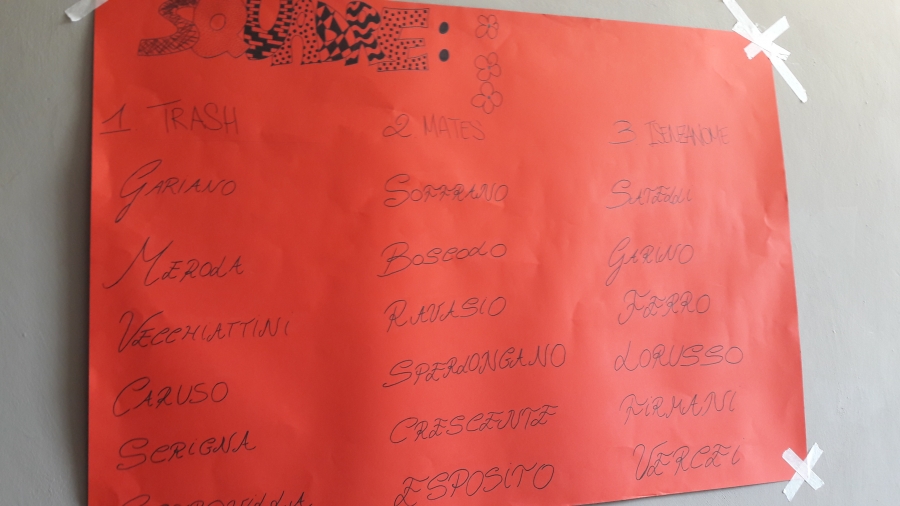 SQUADRE:
1 TRASH
GARIANO
MEROLA
VECCHIATTINI
CARUSO
SCRIGNA
2 MATES
SOFFRANO
BOSCOLO
RAVASIO
SPERLONGANO
CRESCENTE
ESPOSITO
3 ISENZANOME
SATELLI
GARINO
FERRO
LORUSSO
FIRMANI
VERCEI